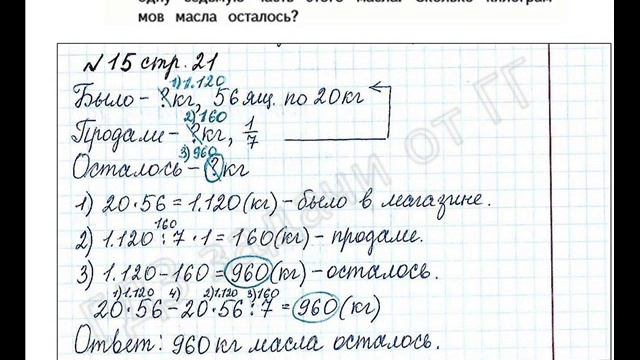 одну седьмую часть этого масла. Сколько килограм-
мов масла осталось?
№15 стр. 21
1) 1.120
Было - ?кг, 56 ящ. по 20 кг
2) 160
Продали - ?кг, 1/7
3) 960
Осталось - ? кг
1) 20·56 = 1.120 (кг) - было в магазине.
160
2) 1.120 : 7 · 1 = 160 (кг) - продали.
3) 1.120 - 160 = 960 (кг) - осталось.
1) 1.120 4) 2) 1.120 3) 160
20·56 - 20·56 : 7 = 960 (кг)
Ответ: 960 кг масла осталось.
ГДЗ задачи от ГГ